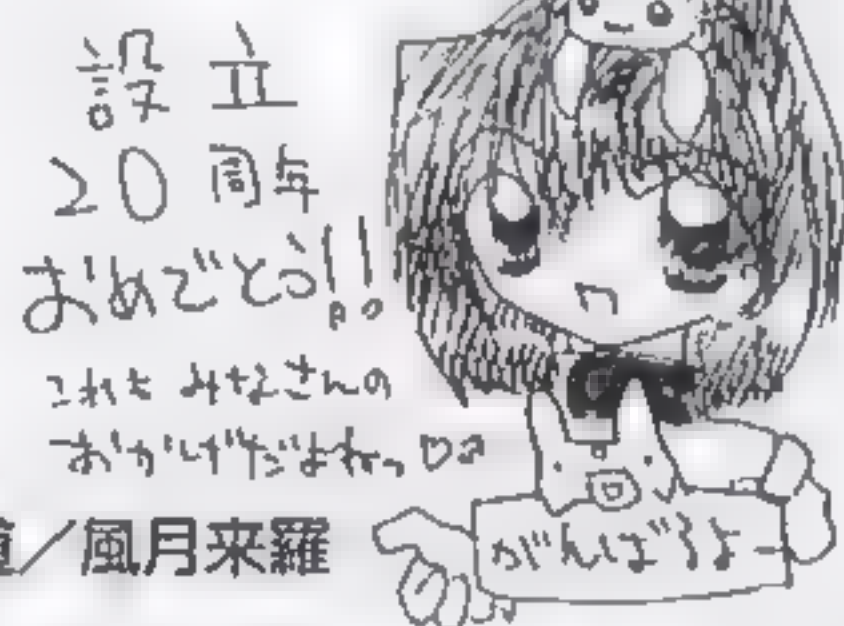 設立
20周年
おめでとう!!
これも みなさんの
おかげだよねっ♡
／風月来羅
がんばるよー